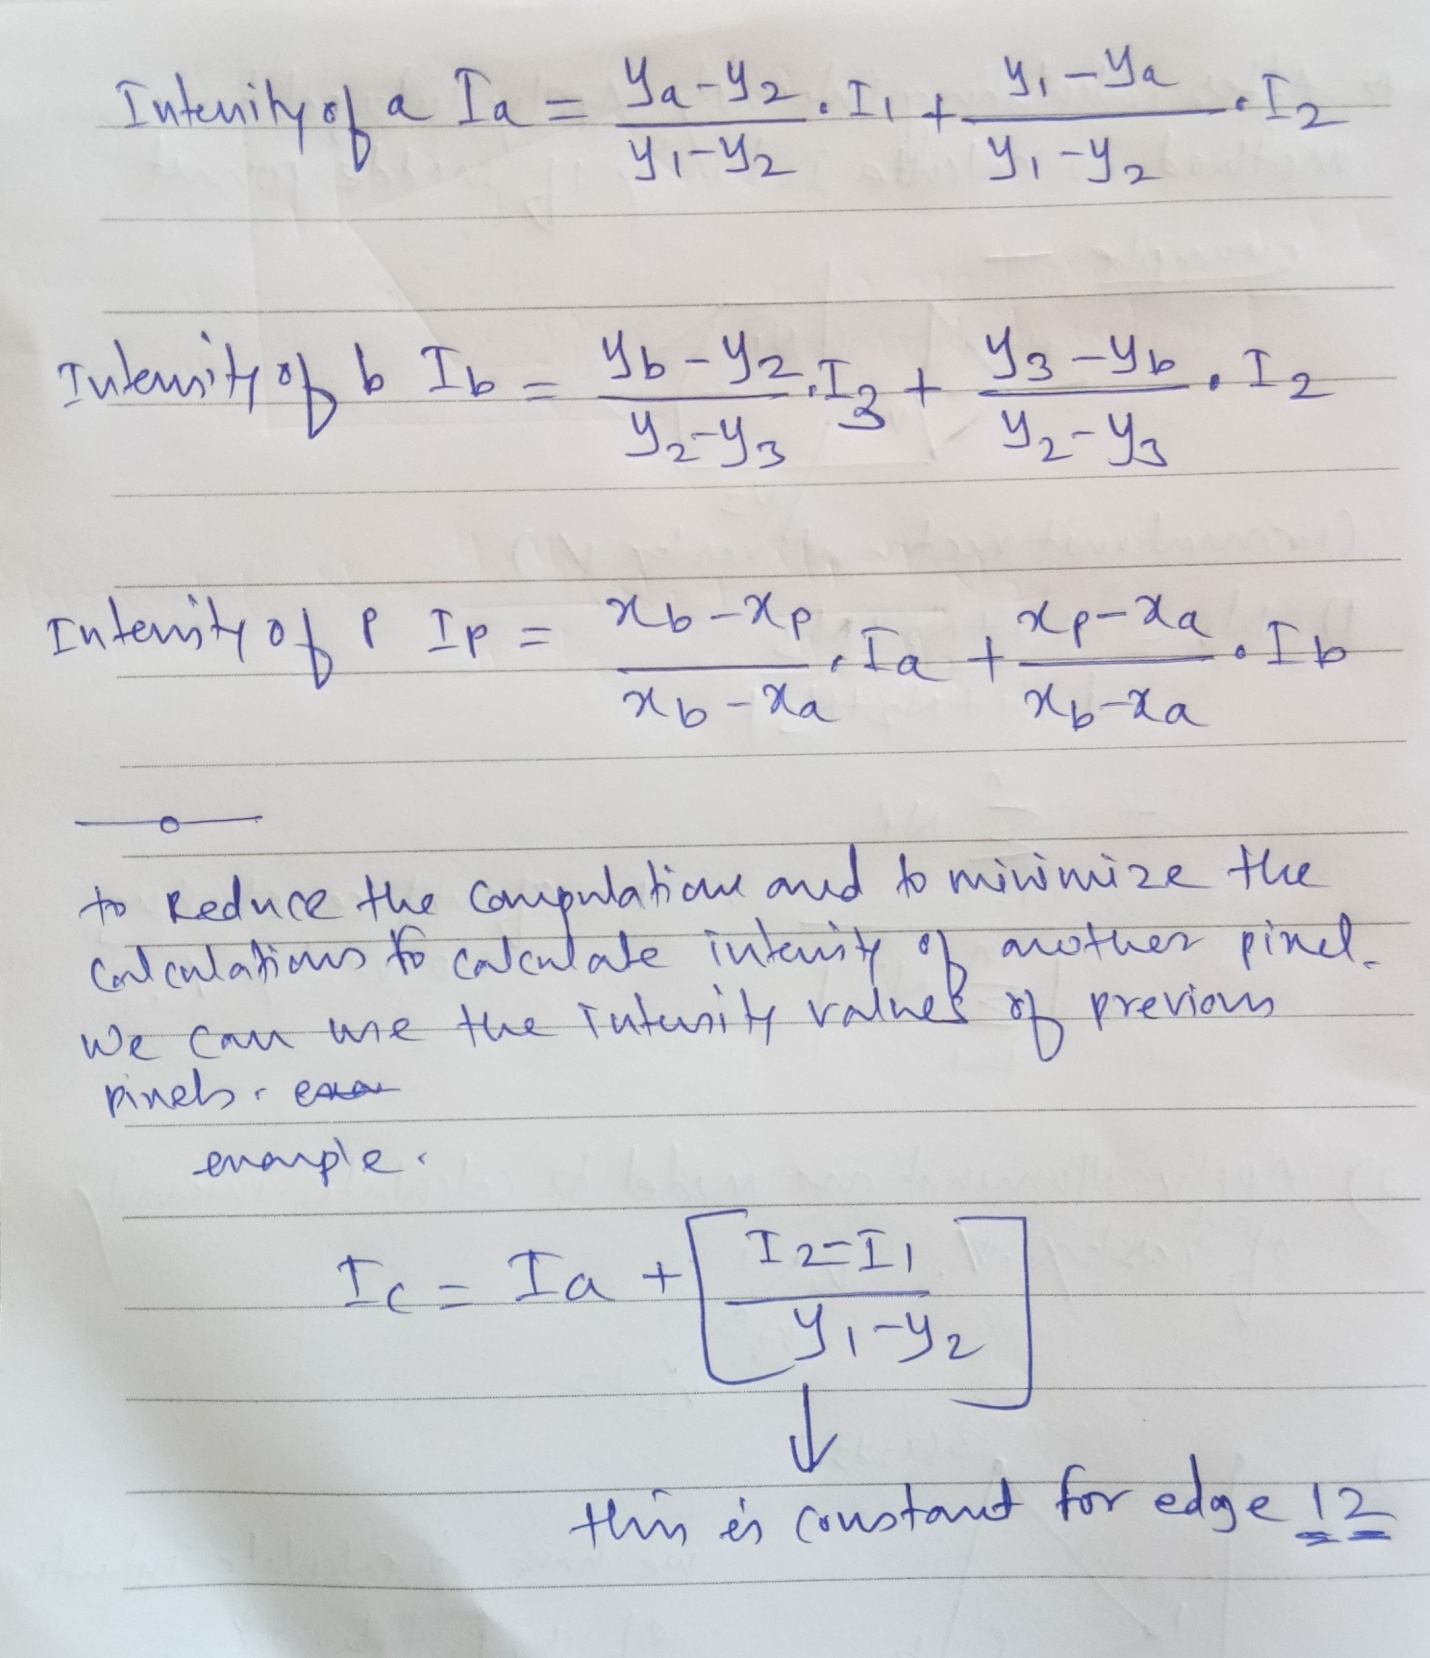 Intensity of a Ia = (ya-y2)/(y1-y2) . I1 + (y1-ya)/(y1-y2) . I2
Intensity of b Ib = (yb-y2)/(y2-y3) . I3 + (y3-yb)/(y2-y3) . I2
Intensity of P Ip = (xb-xp)/(xb-xa) . Ia + (xp-xa)/(xb-xa) . Ib
to Reduce the Computation and to minimize the
Calculations to calculate intensity of another pixel.
We can use the intensity values of previous
pixels.
example.
Ic = Ia + [(I2-I1)/(y1-y2)]
↓
this is constant for edge 12